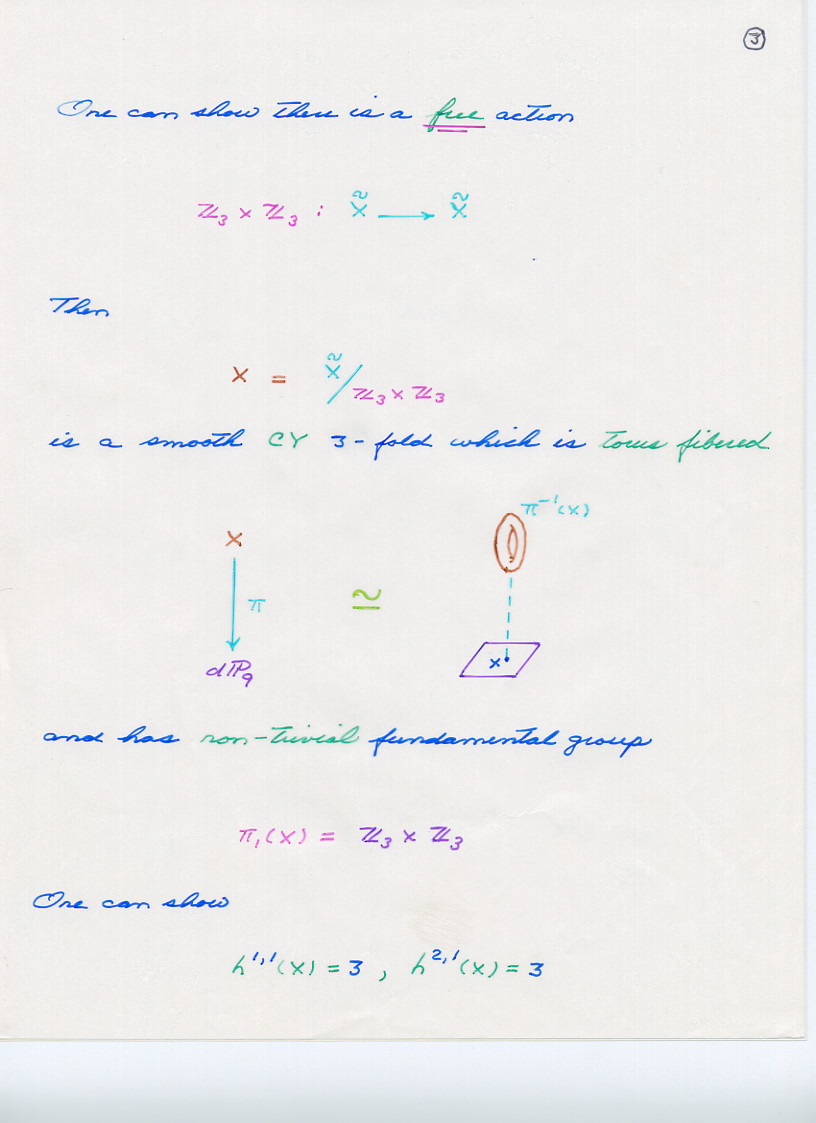 ③
One can show there is a free action
ℤ₃ × ℤ₃ : X̃ ⟶ X̃
Then
X = X̃/ℤ₃ × ℤ₃
is a smooth CY 3-fold which is torus fibered
π⁻¹(x)
X
π ≅
x
dℙ₉
and has non-trivial fundamental group
π₁(X) = ℤ₃ × ℤ₃
One can show
h¹,¹(X) = 3 , h²,¹(X) = 3